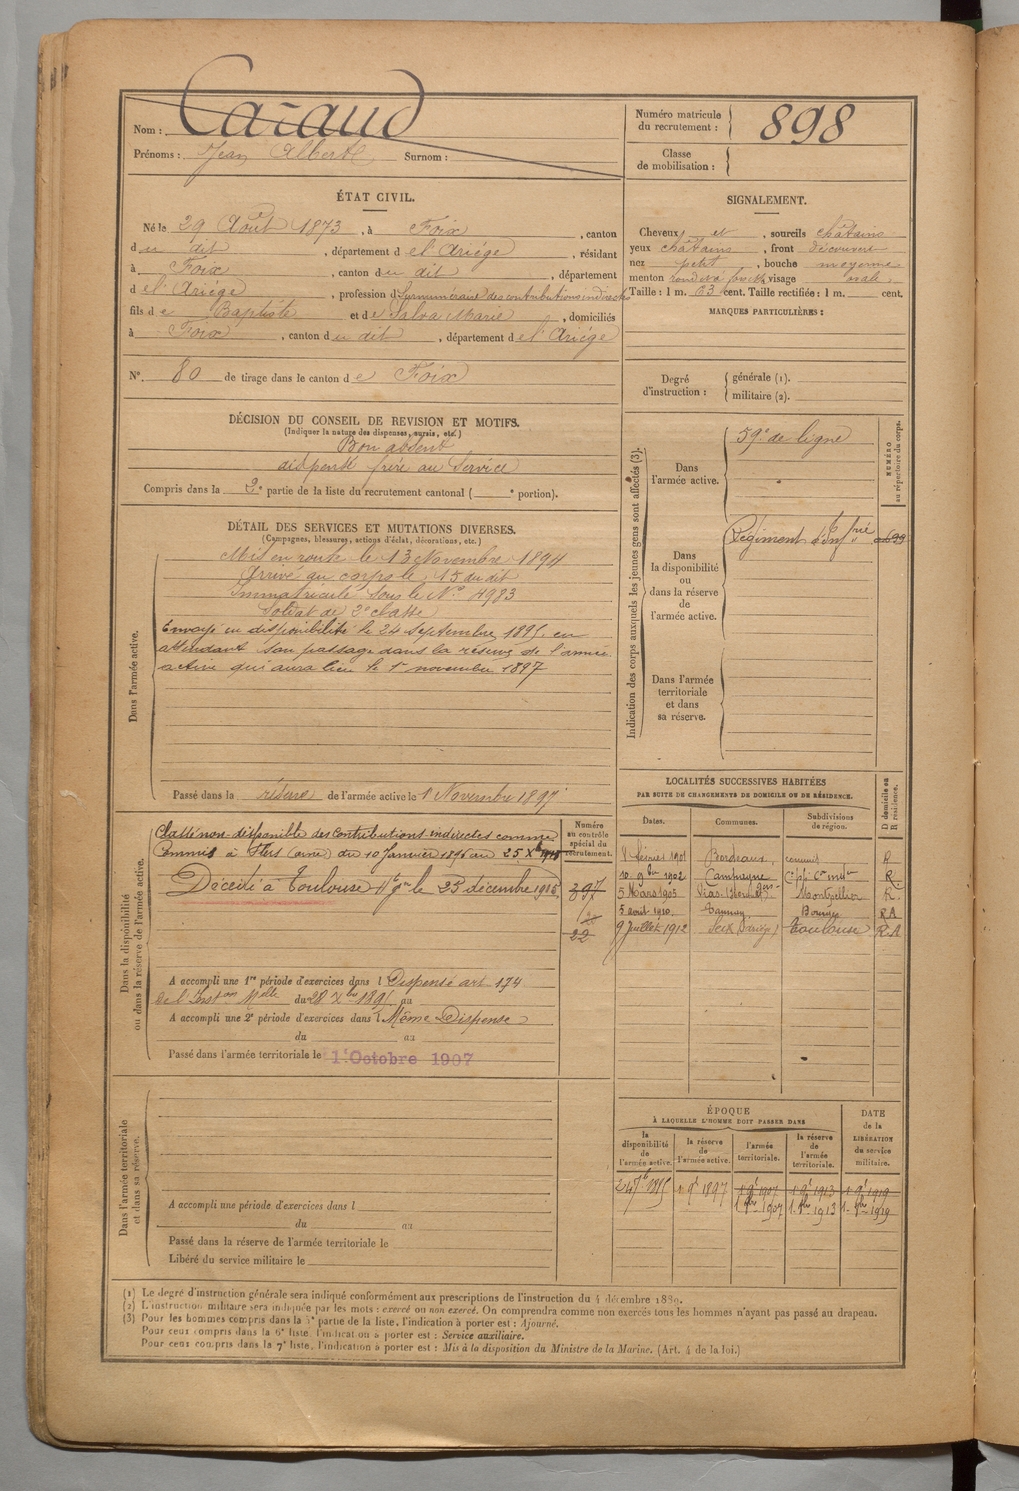 Nom : Cazaud
Prénoms : Jean Albert Surnom :
Numéro matricule du recrutement : 898
Classe de mobilisation :
ÉTAT CIVIL.
Né le 29 Août 1873, à Foix, canton
du dit, département de l'Ariège, résidant
à Foix, canton du dit, département
de l'Ariège, profession de Surnuméraire des contributions indirectes
fils de Baptiste et de Salva Marie, domiciliés
à Foix, canton du dit, département de l'Ariège
N° 80 de tirage dans le canton de Foix
SIGNALEMENT.
Cheveux et, sourcils châtains
yeux châtains, front découvert
nez petit, bouche moyenne
menton rond visage ovale
Taille : 1 m. 63 cent. Taille rectifiée : 1 m. cent.
MARQUES PARTICULIÈRES :
Degré d'instruction : générale (1).
militaire (2).
DÉCISION DU CONSEIL DE REVISION ET MOTIFS.
(Indiquer la nature des dispenses, sursis, etc.)
Bon absent
dispensé frère au Service
Compris dans la 2e partie de la liste du recrutement cantonal ( e portion).
DÉTAIL DES SERVICES ET MUTATIONS DIVERSES.
(Campagnes, blessures, actions d'éclat, décorations, etc.)
Dans l'armée active.
Mis en route le 13 Novembre 1894
Arrivé au corps le 15 du dit
Immatriculé sous le N° 4983
Soldat de 2e classe
Envoyé en disponibilité le 24 septembre 1895 en
attendant son passage dans la réserve de l'armée
active qui aura lieu le 1er novembre 1897
Passé dans la réserve de l'armée active le 1 Novembre 1897
Indication des corps auxquels les jeunes gens sont affectés (3).
NUMÉRO au répertoire du corps.
Dans l'armée active.
59e de ligne
Dans la disponibilité ou dans la réserve de l'armée active.
Régiment d'Infrie
Dans l'armée territoriale et dans sa réserve.
LOCALITÉS SUCCESSIVES HABITÉES
PAR SUITE DE CHANGEMENTS DE DOMICILE OU DE RÉSIDENCE.
Dates. Communes. Subdivisions de région. D domicile ou R résidence.
février 1901 Bordeaux, commis R
10 9bre 1902 Campagne R
5 Mars 1905 Vias Montpellier R
5 août 1910 Tannay Bourges RA
9 Juillet 1912 Seix Toulouse R.A
Dans la disponibilité ou dans la réserve de l'armée active.
Numéro au contrôle spécial du recrutement.
Classé non-disponible des Contributions indirectes comme
Commis à Flers (orne) du 10 Janvier 1896 au 25 Xbre 1915
Décédé à Toulouse Hte Gne le 25 décembre 1915
397
22
A accompli une 1re période d'exercices dans l Dispensé art 174
de l'Inston Mlle du 28 Xbre 1895 au
A accompli une 2e période d'exercices dans l Même Dispense
du au
Passé dans l'armée territoriale le 1er Octobre 1907
Dans l'armée territoriale et dans sa réserve.
A accompli une période d'exercices dans l
du au
Passé dans la réserve de l'armée territoriale le
Libéré du service militaire le
ÉPOQUE
À LAQUELLE L'HOMME DOIT PASSER DANS
DATE de la LIBÉRATION du service militaire.
la disponibilité de l'armée active. la réserve de l'armée active. l'armée territoriale. la réserve de l'armée territoriale.
24 7bre 1895 1 9bre 1897 1 9bre 1907 1 9bre 1913 1 9bre 1919
1 8bre 1907 1 8bre 1913 1 8bre 1919
(1) Le degré d'instruction générale sera indiqué conformément aux prescriptions de l'instruction du 4 décembre 1889.
(2) L'instruction militaire sera indiquée par les mots : exercé ou non exercé. On comprendra comme non exercés tous les hommes n'ayant pas passé au drapeau.
(3) Pour les hommes compris dans la 5e partie de la liste, l'indication à porter est : Ajourné.
Pour ceux compris dans la 6e liste, l'indication à porter est : Service auxiliaire.
Pour ceux compris dans la 7e liste, l'indication à porter est : Mis à la disposition du Ministre de la Marine. (Art. 4 de la loi.)